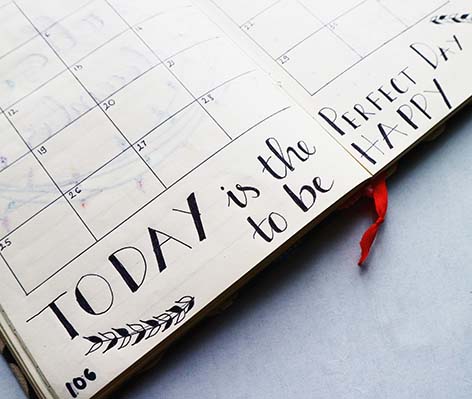 12
13
19
20
25
26
TODAY is the PERFECT DAY
to be HAPPY
106